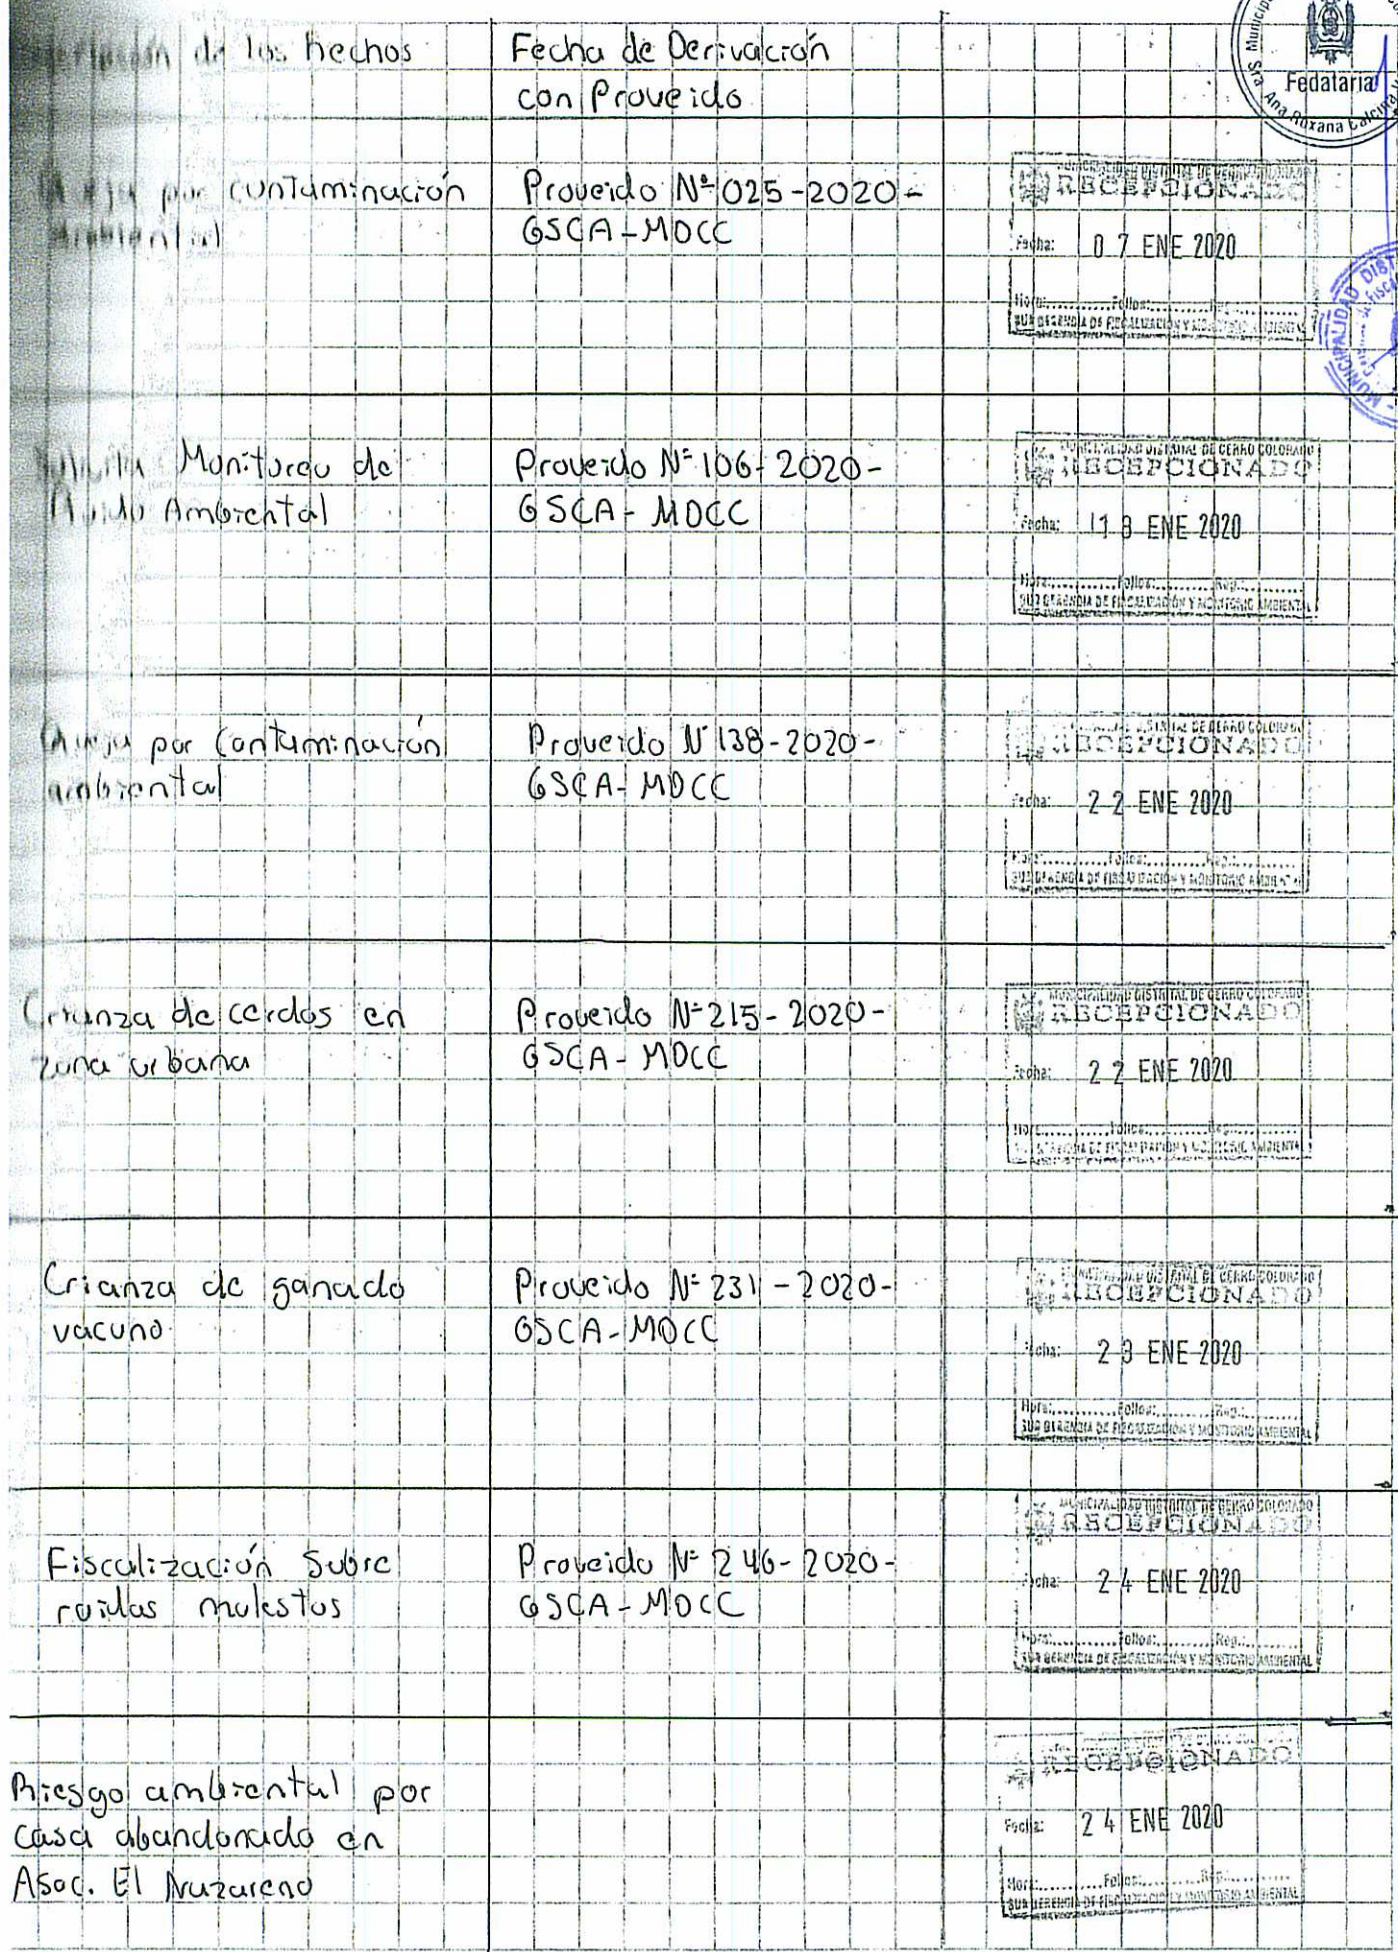 de los hechos
Fecha de Derivación
con Proveido
Fedataria
Sra. Ana Roxana
Queja por contaminación
Ambiental
Proveido Nº 025-2020-
GSCA-MDCC
RECEPCIONADO
Fecha: 07 ENE 2020
Hora:.......... Folios:.......... Reg.:..........
SUB GERENCIA DE FISCALIZACIÓN Y MONITORIO AMBIENTAL
Solicita Monitoreo de
Ruido Ambiental
Proveido Nº 106-2020-
GSCA-MDCC
MUNICIPALIDAD DISTRITAL DE CERRO COLORADO
RECEPCIONADO
Fecha: ENE 2020
Hora:.......... Folios:.......... Reg.:..........
SUB GERENCIA DE FISCALIZACIÓN Y MONITORIO AMBIENTAL
Queja por Contaminación
ambiental
Proveido Nº 138-2020-
GSCA-MDCC
DISTRITAL DE CERRO COLORADO
RECEPCIONADO
Fecha: 22 ENE 2020
Hora:.......... Folios:.......... Reg.:..........
SUB GERENCIA DE FISCALIZACIÓN Y MONITORIO AMBIENTAL
Crianza de cerdos en
zona urbana
Proveido Nº 215-2020-
GSCA-MDCC
MUNICIPALIDAD DISTRITAL DE CERRO COLORADO
RECEPCIONADO
Fecha: 22 ENE 2020
Hora:.......... Folios:.......... Reg.:..........
SUB GERENCIA DE FISCALIZACIÓN Y MONITORIO AMBIENTAL
Crianza de ganado
vacuno
Proveido Nº 231-2020-
GSCA-MDCC
MUNICIPALIDAD DISTRITAL DE CERRO COLORADO
RECEPCIONADO
Fecha: 23 ENE 2020
Hora:.......... Folios:.......... Reg.:..........
SUB GERENCIA DE FISCALIZACIÓN Y MONITORIO AMBIENTAL
Fiscalización Sobre
ruidos molestos
Proveido Nº 246-2020-
GSCA-MDCC
MUNICIPALIDAD DISTRITAL DE CERRO COLORADO
RECEPCIONADO
Fecha: 24 ENE 2020
Hora:.......... Folios:.......... Reg.:..........
SUB GERENCIA DE FISCALIZACIÓN Y MONITORIO AMBIENTAL
Riesgo ambiental por
casa abandonado en
Asoc. El Nazareno
RECEPCIONADO
Fecha: 24 ENE 2020
Hora:.......... Folios:.......... Reg.:..........
SUB GERENCIA DE FISCALIZACIÓN Y MONITORIO AMBIENTAL